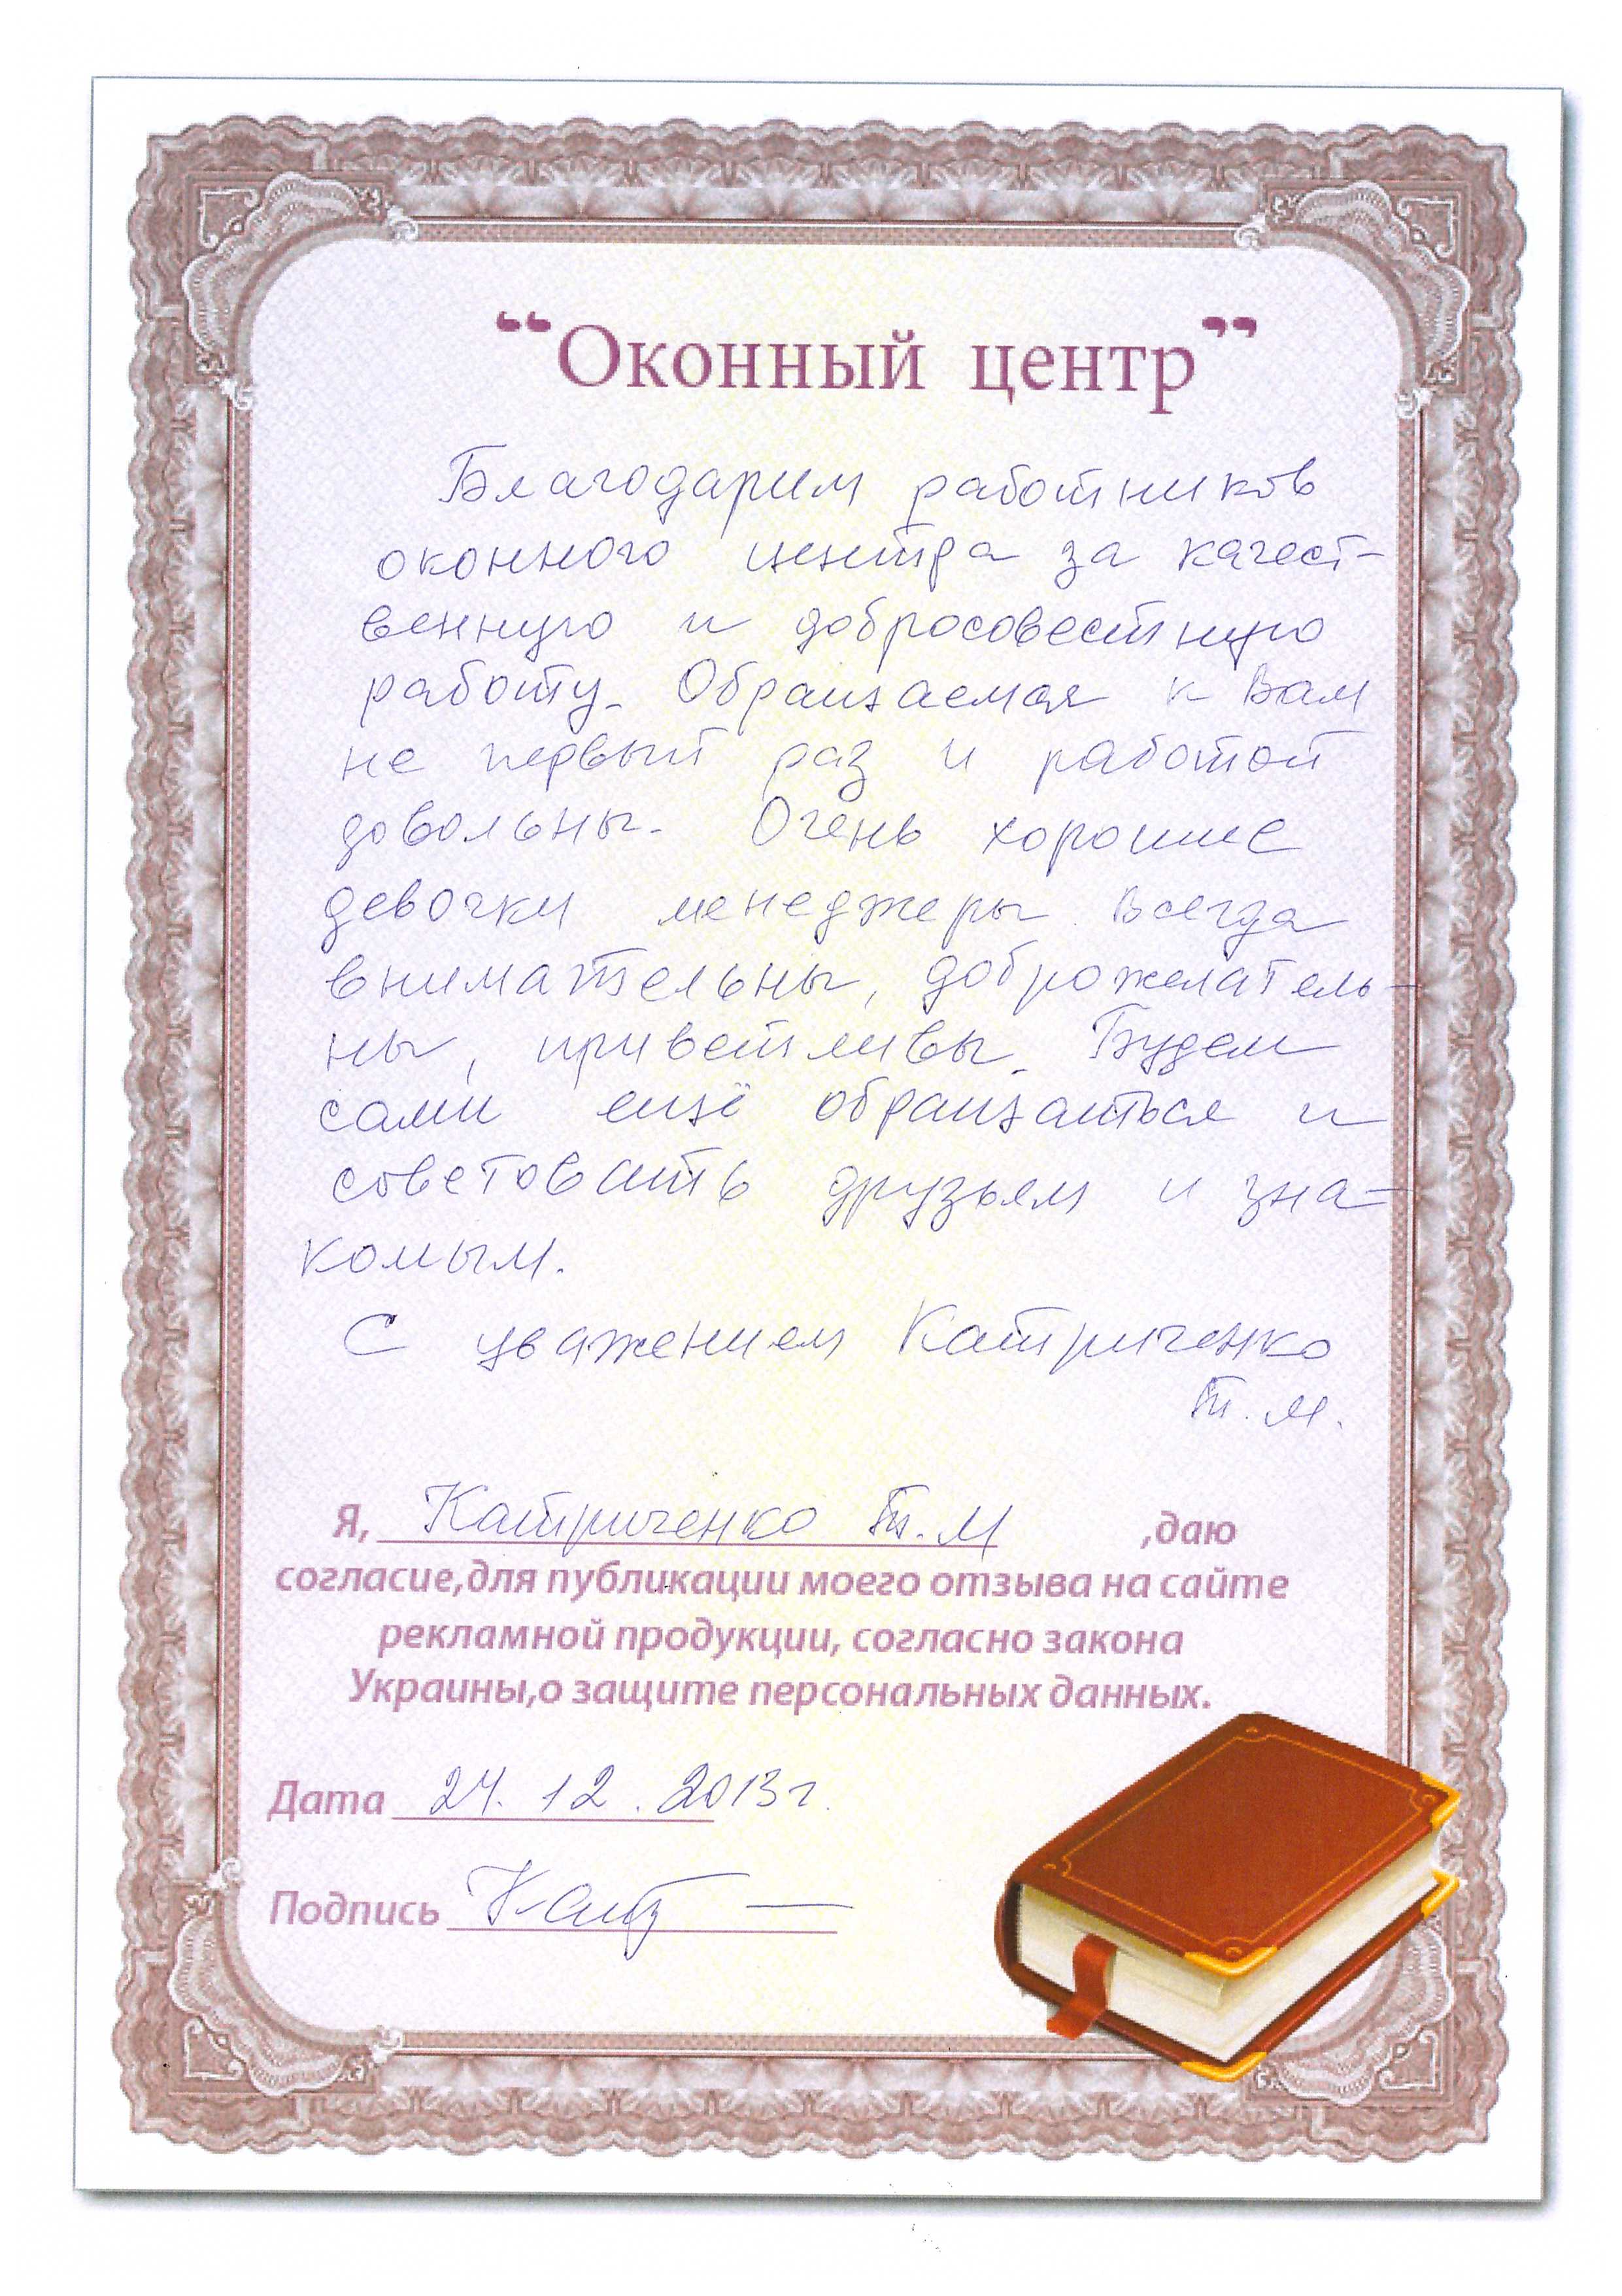 “Оконный центр”
Благодарим работников
оконного центра за качест-
венную и добросовестную
работу. Обращаемся к Вам
не первый раз и работой
довольны. Очень хорошие
девочки менеджеры. Всегда
внимательны, доброжелатель-
ны, приветливы. Будем
сами ещё обращаться и
советовать друзьям и зна-
комым.
С уважением Катриченко
Т.М.
Я, Катриченко Т.М ,даю
согласие,для публикации моего отзыва на сайте
рекламной продукции, согласно закона
Украины,о защите персональных данных.
Дата 24.12.2013г.
Подпись